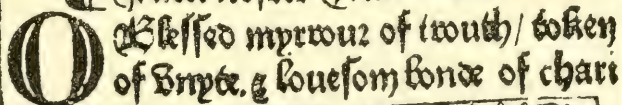 O Blessed myrrour of trouth/ token
of Vnyte. & louesom bonde of chari